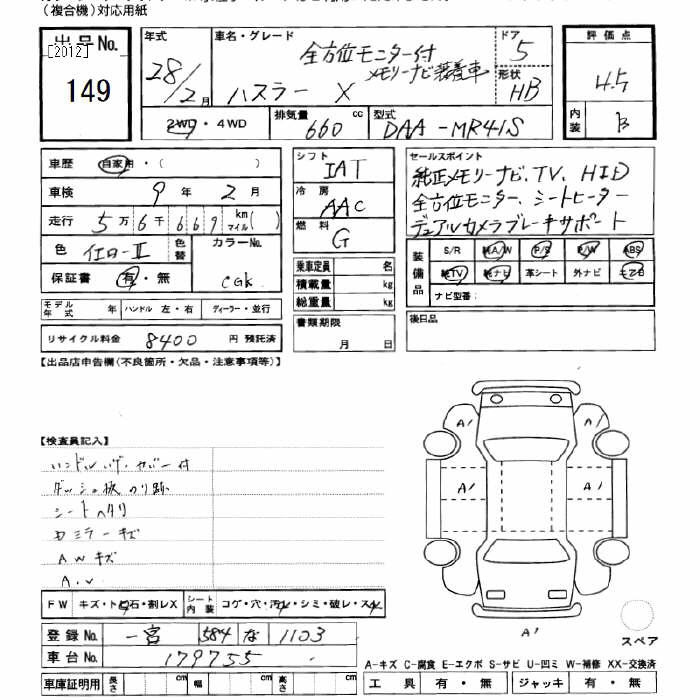 (複合機)対応用紙
出品No.
[2012]
149
年式
28/2月
車名・グレード
全方位モニター付
メモリーナビ装着車
ハスラー X
ドア
5
形状
HB
評価点
4.5
内装
B
2WD・4WD
排気量
660
cc
型式
DAA-MR41S
車歴
自家用・( )
車検
9年2月
走行
5万6千669
km
マイル( )
色
イエローⅡ
色替
カラーNo.
CGK
保証書
有・無
モデル年式
年
ハンドル 左・右
ディーラー・並行
リサイクル料金 8400 円 預託済
シフト
IAT
冷房
AAC
燃料
G
乗車定員 名
積載量 kg
総重量 kg
書類期限
月 日
セールスポイント
純正メモリーナビ、TV、HID
全方位モニター、シートヒーター
デュアルカメラブレーキサポート
装備品
S/R 純A/W P/S P/W ABS
純TV 純ナビ 革シート 外ナビ エアB
ナビ型番:
後日品
【出品店申告欄(不良箇所・欠品・注意事項等)】
【検査員記入】
ハンドル
カバー付
ダッシュ板 のり跡
シートヘタリ
ミラーキズ
AWキズ
A.U
A1
A1
A1
A1
A1
スペア
FW
キズ・ト石・割レX
シート内装
コゲ・穴・汚レ・シミ・破レ・スレ
登録No.
一宮 584 な 1103
車台No.
179755
車庫証明用
長さ cm 幅 cm 高さ cm
A-キズ C-腐食 E-エクボ S-サビ U-凹ミ W-補修 XX-交換済
工具 有・無 ジャッキ 有・無